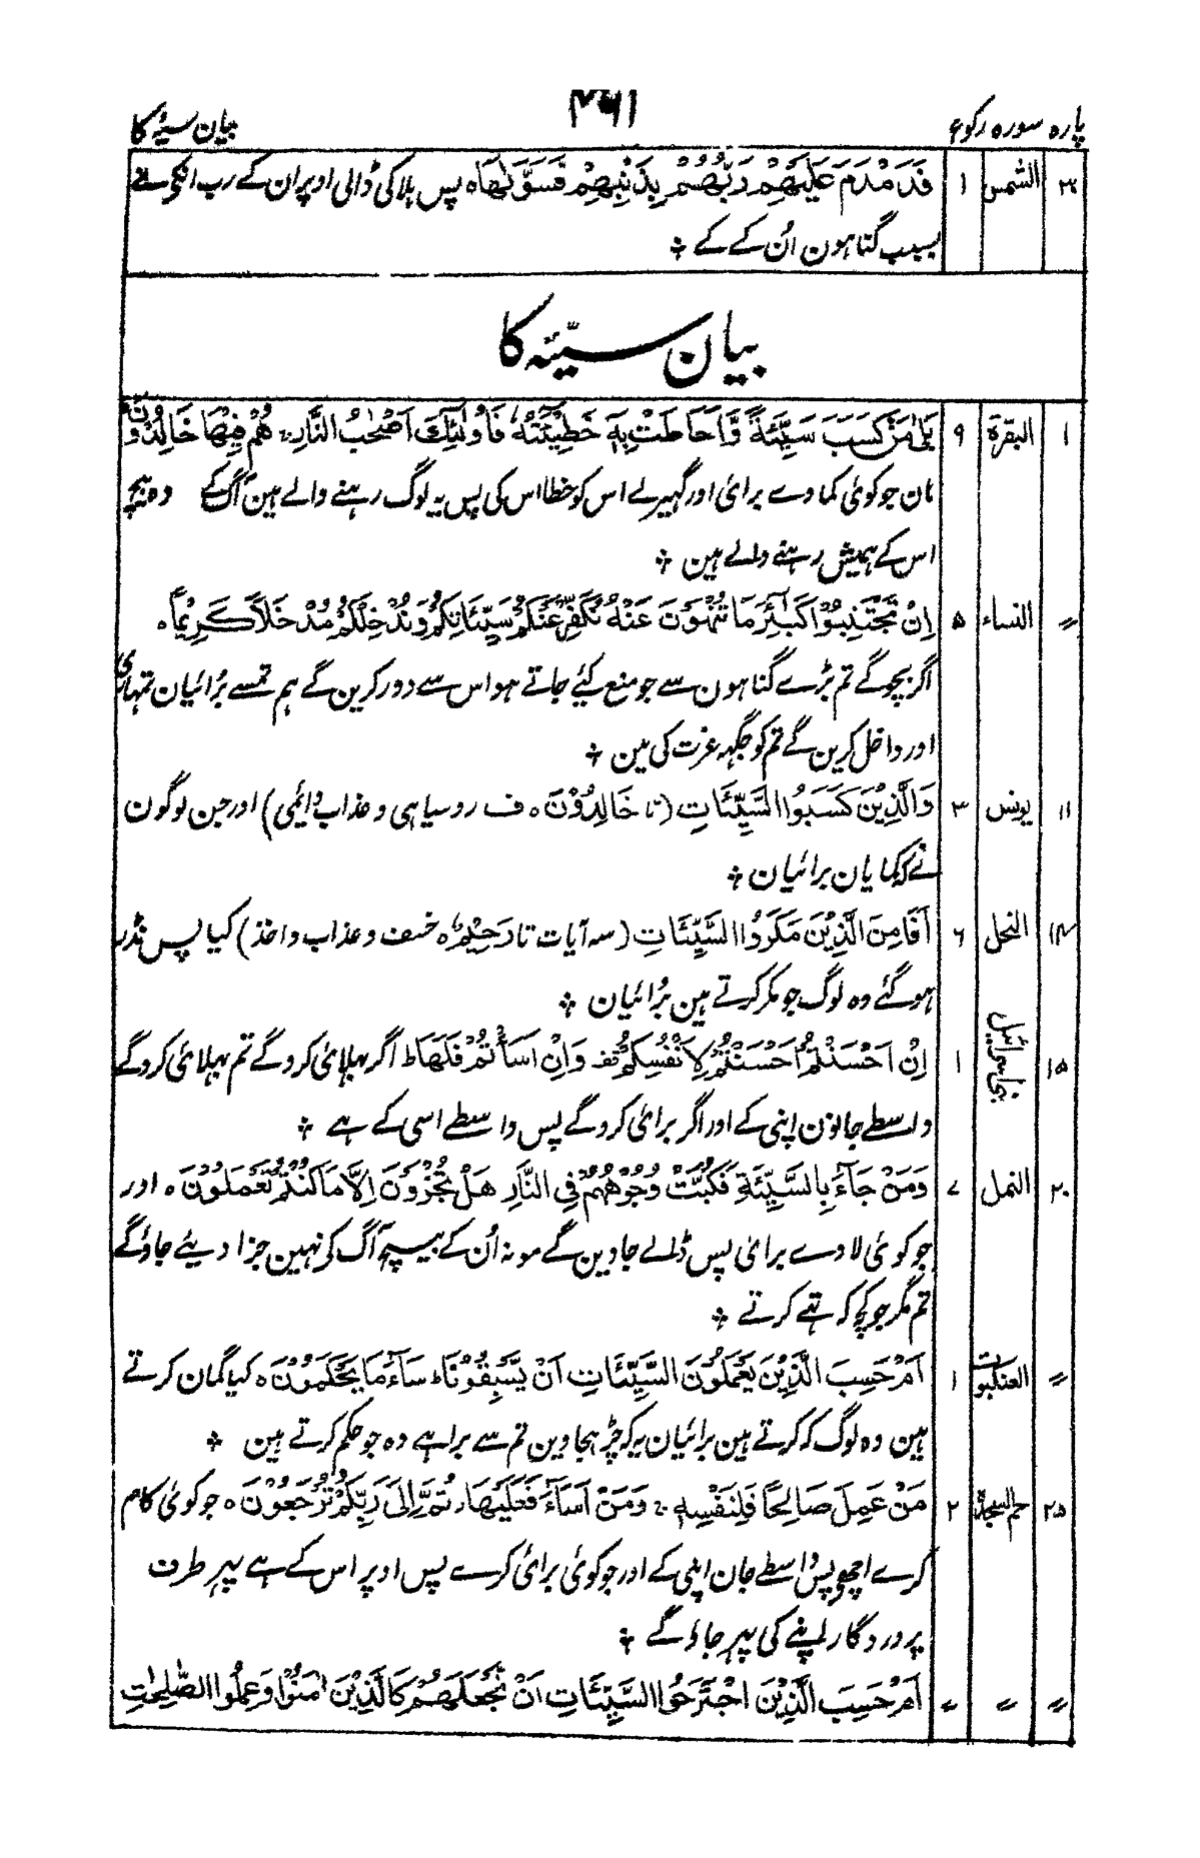 پارہ سورہ رکوع ۴۶۱ بیان سیئہ کا
۳۰ الشمس ۱ فَدَمْدَمَ عَلَيْهِمْ رَبُّهُمْ بِذَنْبِهِمْ فَسَوّٰىهَا ہ پس ہلاکی ڈالی اوپر ان کے رب انکی نے
بسبب گناہون اُن کے کے ÷
بیان سیّئہ کا
۱ البقرۃ ۹ بَلٰى مَنْ كَسَبَ سَيِّئَةً وَّاَحَاطَتْ بِهٖ خَطِيْٓئَتُهٗ فَاُولٰٓئِكَ اَصْحٰبُ النَّارِ هُمْ فِيْهَا خَالِدُوْنَ
ہان جو کوئی کماوے برائی اور گہیر لے اس کو خطا اس کی پس یہ لوگ رہنے والے ہین آگ کے وہ بیچ
اس کے ہمیش رہنے والے ہین ÷
〃 النساء ۵ اِنْ تَجْتَنِبُوْا كَبَآئِرَ مَا تُنْهَوْنَ عَنْهُ نُكَفِّرْ عَنْكُمْ سَيِّئَاتِكُمْ وَنُدْخِلْكُمْ مُدْخَلًا كَرِيْمًا ہ
اگر بچو گے تم بڑے گناہون سے جو منع کیئے جاتے ہو اس سے دور کرین گے ہم تمسے بُرائیان تمہاری
اور داخل کرین گے تم کو جگہہ عزت کی مین ÷
۱۱ یونس ۳ وَالَّذِيْنَ كَسَبُوا السَّيِّئَاتِ (تا خَالِدُوْنَ ہ ف روسیاہی و عذاب دائمی) اور جن لوگون
نے کمایان برائیان ÷
۱۴ النحل ۶ اَفَاَمِنَ الَّذِيْنَ مَكَرُوا السَّيِّئَاتِ (سہ آیات تا رَحِيْمٌ ہ خسف و عذاب و اخذ) کیا پس نڈر
ہو گئے وہ لوگ جو مکر کرتے ہین بُرائیان ÷
۱۵ بنی اسرائیل ۱ اِنْ اَحْسَنْتُمْ اَحْسَنْتُمْ لِاَنْفُسِكُمْ قف وَاِنْ اَسَأْتُمْ فَلَهَا ط اگر بہلائی کروگے تم بہلائی کروگے
واسطے جانون اپنی کے اور اگر برائی کروگے پس واسطے اسی کے ہے ÷
۲۰ النمل ۷ وَمَنْ جَآءَ بِالسَّيِّئَةِ فَكُبَّتْ وُجُوْهُهُمْ فِي النَّارِ هَلْ تُجْزَوْنَ اِلَّا مَا كُنْتُمْ تَعْمَلُوْنَ ہ اور
جو کوئی لاوے برائی پس ڈالے جاوین گے مونہ اُن کے بیچ آگ کو نہین جزا دیئے جاؤگے
تم مگر جو کچہ کہ تہے کرتے ÷
〃 العنکبوت ۱ اَمْ حَسِبَ الَّذِيْنَ يَعْمَلُوْنَ السَّيِّئَاتِ اَنْ يَّسْبِقُوْنَا ط سَآءَ مَا يَحْكُمُوْنَ ہ کیا گمان کرتے
ہین وہ لوگ کہ کرتے ہین برائیان یہ کہ چڑہجاوین تم سے برا ہے وہ جو حکم کرتے ہین ÷
۲۵ حم السجدۃ ۲ مَنْ عَمِلَ صَالِحًا فَلِنَفْسِهٖ وَمَنْ اَسَآءَ فَعَلَيْهَا ثُمَّ اِلٰى رَبِّكُمْ تُرْجَعُوْنَ ہ جو کوئی کام
کرے اچھو پس واسطے جان اپنی کے اور جو کوئی برائی کرے پس اوپر اس کے ہے پہر طرف
پروردگار اپنے کی پہر جاؤگے ÷
〃 〃 〃 اَمْ حَسِبَ الَّذِيْنَ اجْتَرَحُوا السَّيِّئَاتِ اَنْ نَّجْعَلَهُمْ كَالَّذِيْنَ اٰمَنُوْا وَعَمِلُوا الصّٰلِحٰتِ